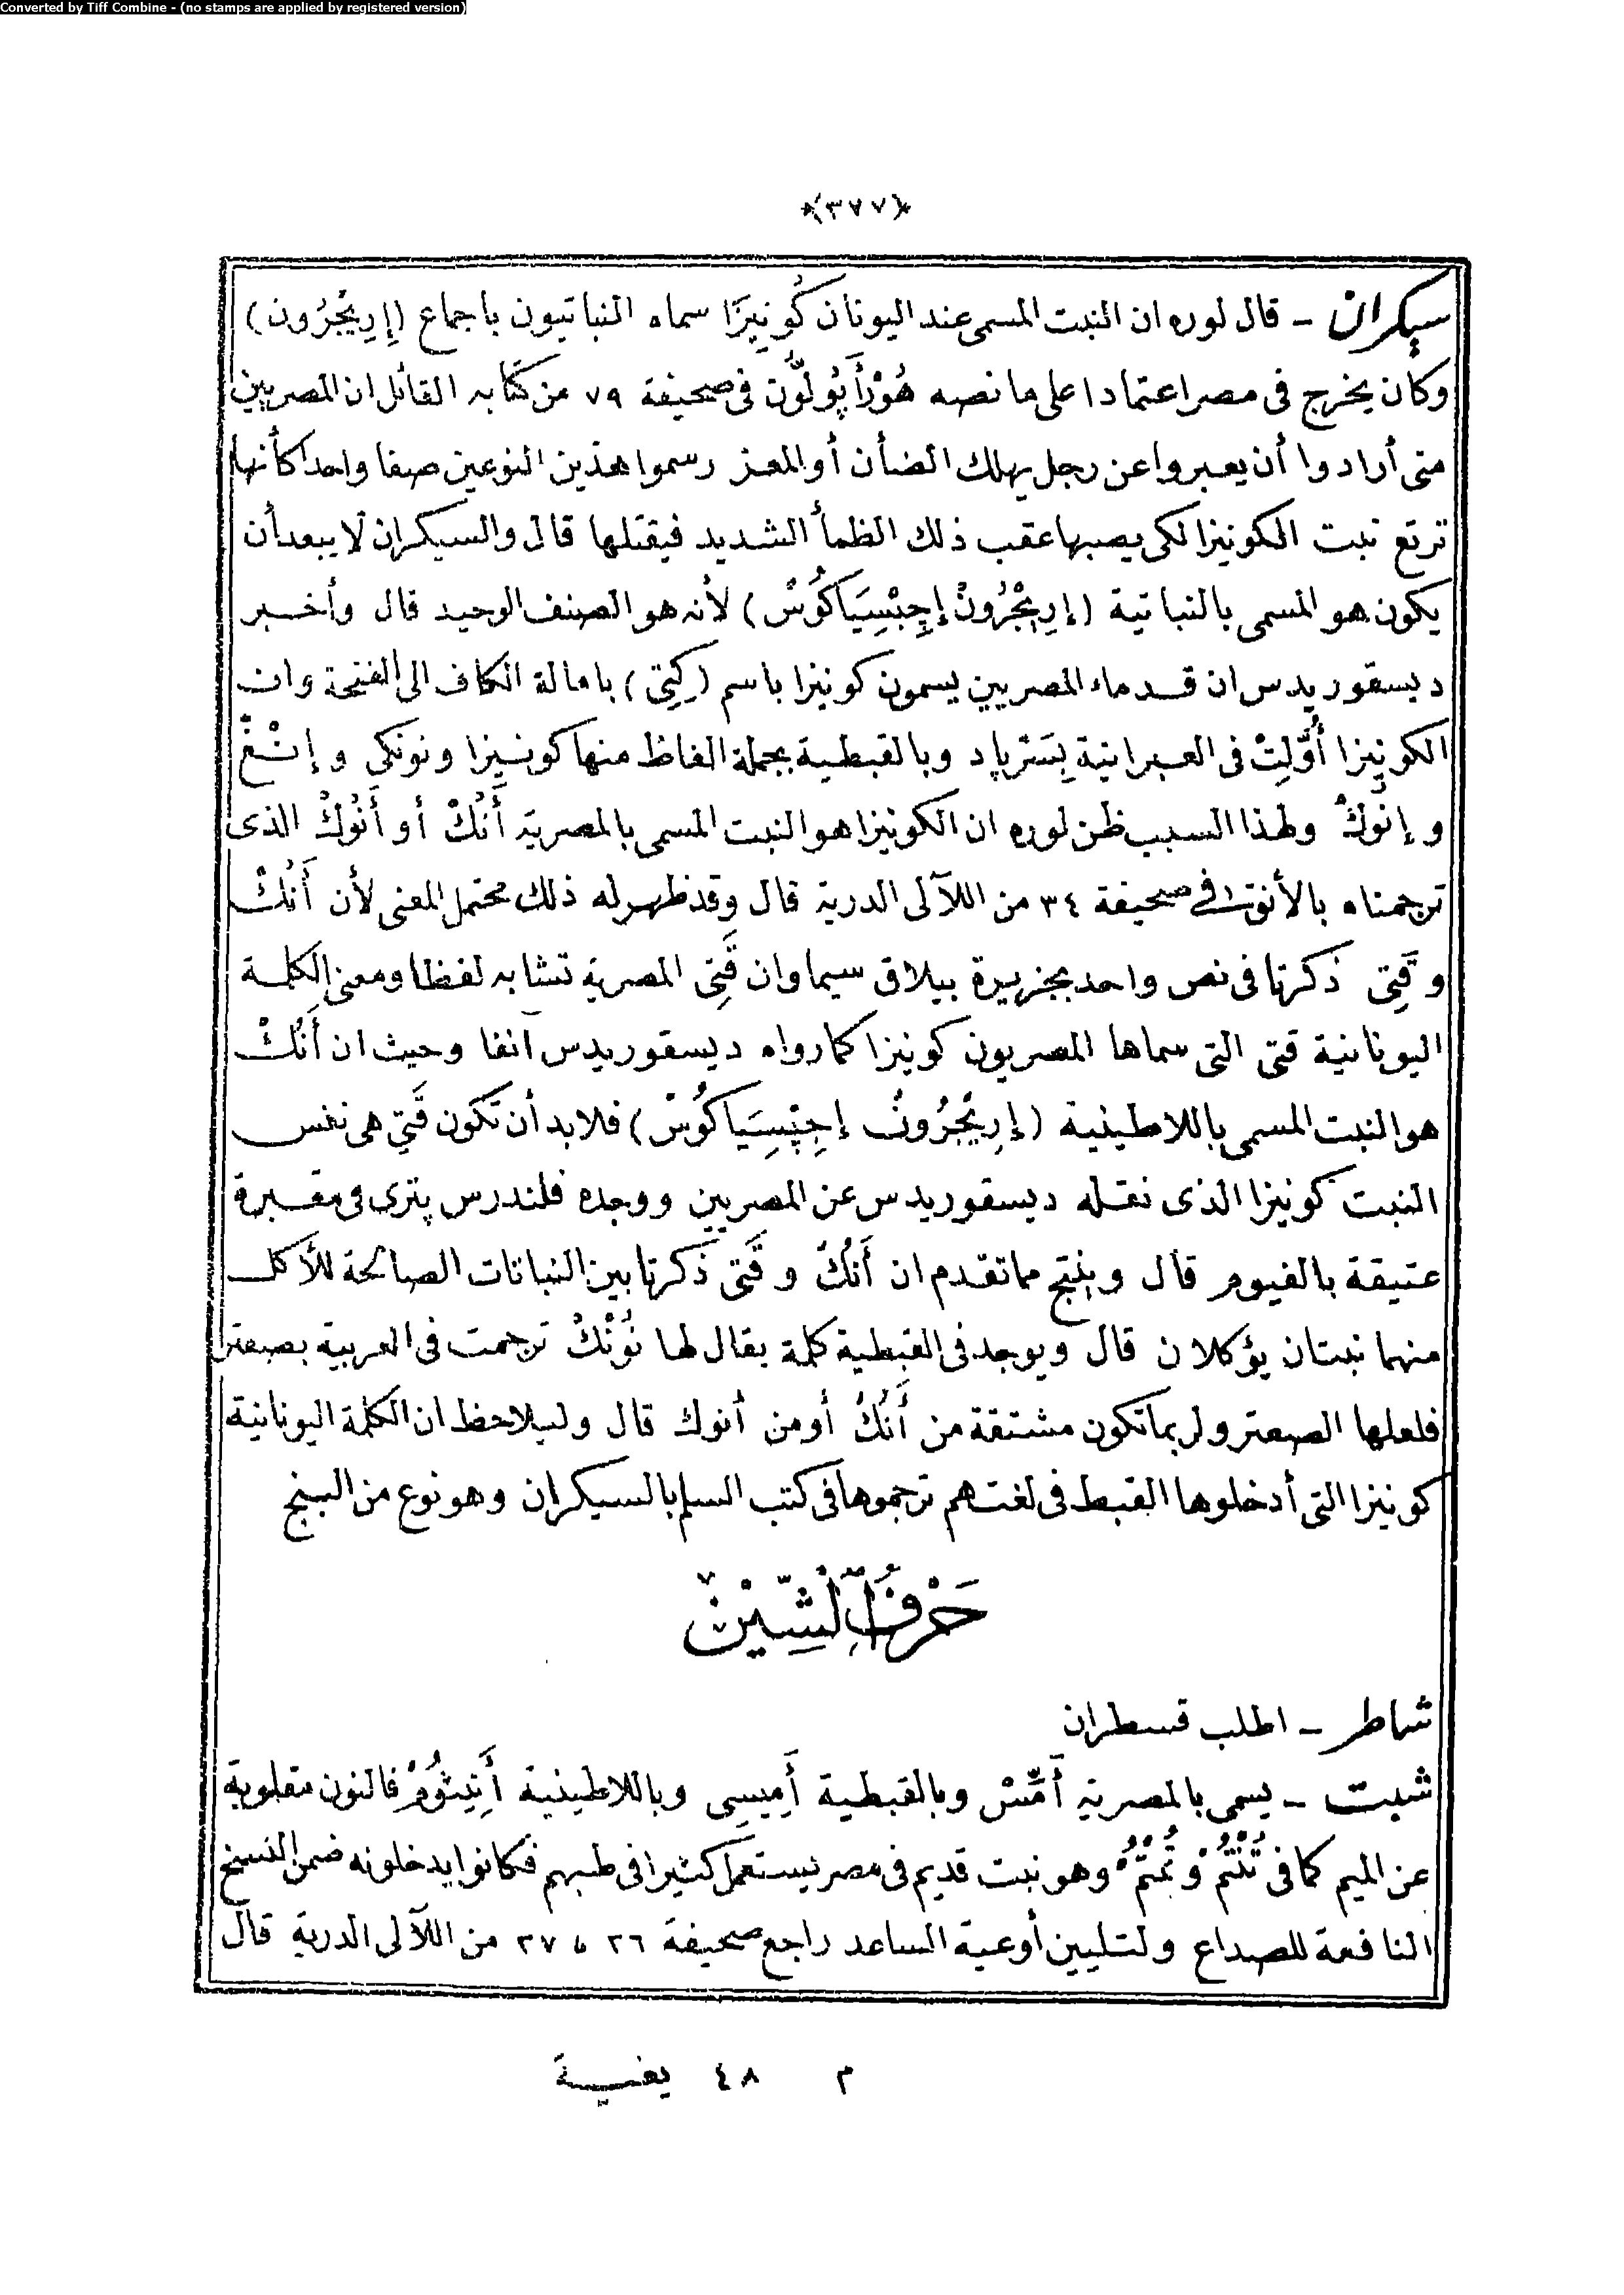 Converted by Tiff Combine - (no stamps are applied by registered version)
﴿٣٧٧﴾
سيكران - قال لوره ان النبت المسمى عند اليونان كُونِيزَا سماه النباتيون باجماع (إِرِيجْرُون)
وكان يخرج فى مصر اعتمادا على ما نصه هُوْرْأَپُولُّون فى صحيفة ٧٩ من كتابه القائل ان المصريين
متى أرادوا أن يعبروا عن رجل يهلك الضأن أو المعز رسموا هذين النوعين صفا واحدا كأنها
ترتع نبت الكونيزا لكى يصبها عقب ذلك الظمأ الشديد فيقتلها قال والسيكران لا يبعد أن
يكون هو المسمى بالنباتية (إِرِيجْرُونْ إِجِبْسِيَاكُوسْ) لأنه هو الصنف الوحيد قال وأخبر
ديسقوريدس ان قدماء المصريين يسمون كونيزا باسم (كِتِى) بامالة الكاف الى الفتحة وان
الكونيزا أُوّلِتْ فى العبرانية بِسَرْيَاد وبالقبطية بجملة الفاظ منها كونيزا ونونكى
وإِنُوكْ ولهذا السبب ظن لوره ان الكونيزا هو النبت المسمى بالمصرية أَنُكْ أو أَنُوكْ الذى
ترجمناه بالأنوق فى صحيفة ٣٤ من اللآلى الدرية قال وقد ظهر له ذلك محتمل المعنى لأن أَنُكْ
وقَتِى ذكرتا فى نص واحد بجزيرة بيلاق سيما وان قَتِى المصرية تشابه لفظا ومعنى الكلمة
اليونانية قتى التى سماها المصريون كونيزا كما رواه ديسقوريدس آنفا وحيث ان أَنُكْ
هو النبت المسمى باللاطينية (إِرِيجْرُونْ إِجِبْسِيَاكُوسْ) فلا بد أن تكون قَتِى هى نفس
النبت كونيزا الذى نقله ديسقوريدس عن المصريين ووجده فلندرس پترى فى مقبرة
عتيقة بالفيوم قال وينتج مما تقدم ان أَنُكْ وقَتِى ذكرتا بين النباتات الصالحة للأكل
منهما نبتان يؤكلان قال ويوجد فى القبطية كلمة يقال لها نُونْكْ ترجمت فى العربية بصعتر
فلعلها الصعتر ولربما تكون مشتقة من أَنُكْ أو من أنوك قال وليلاحظ ان الكلمة اليونانية
كونيزا التى أدخلوها القبط فى لغتهم ترجموها فى كتب السلم بالسيكران وهو نوع من البنج
حَرْفُ الشِّيْنْ
شاطر - اطلب قسطران
شبت - يسمى بالمصرية أَمِّسْ وبالقبطية أَمِيسِى وباللاطينية أَنِيثُومْ فالنون مقلوبة
عن الميم كما فى تُنْتُمْ وتُمْتُمْ وهو نبت قديم فى مصر يستعمل كثيرا فى طبهم فكانوا يدخلونه ضمن النسخ
النافعة للصداع ولتليين أوعية الساعد راجع صحيفة ٢٦ و ٢٧ من اللآلى الدرية قال
م ٤٨